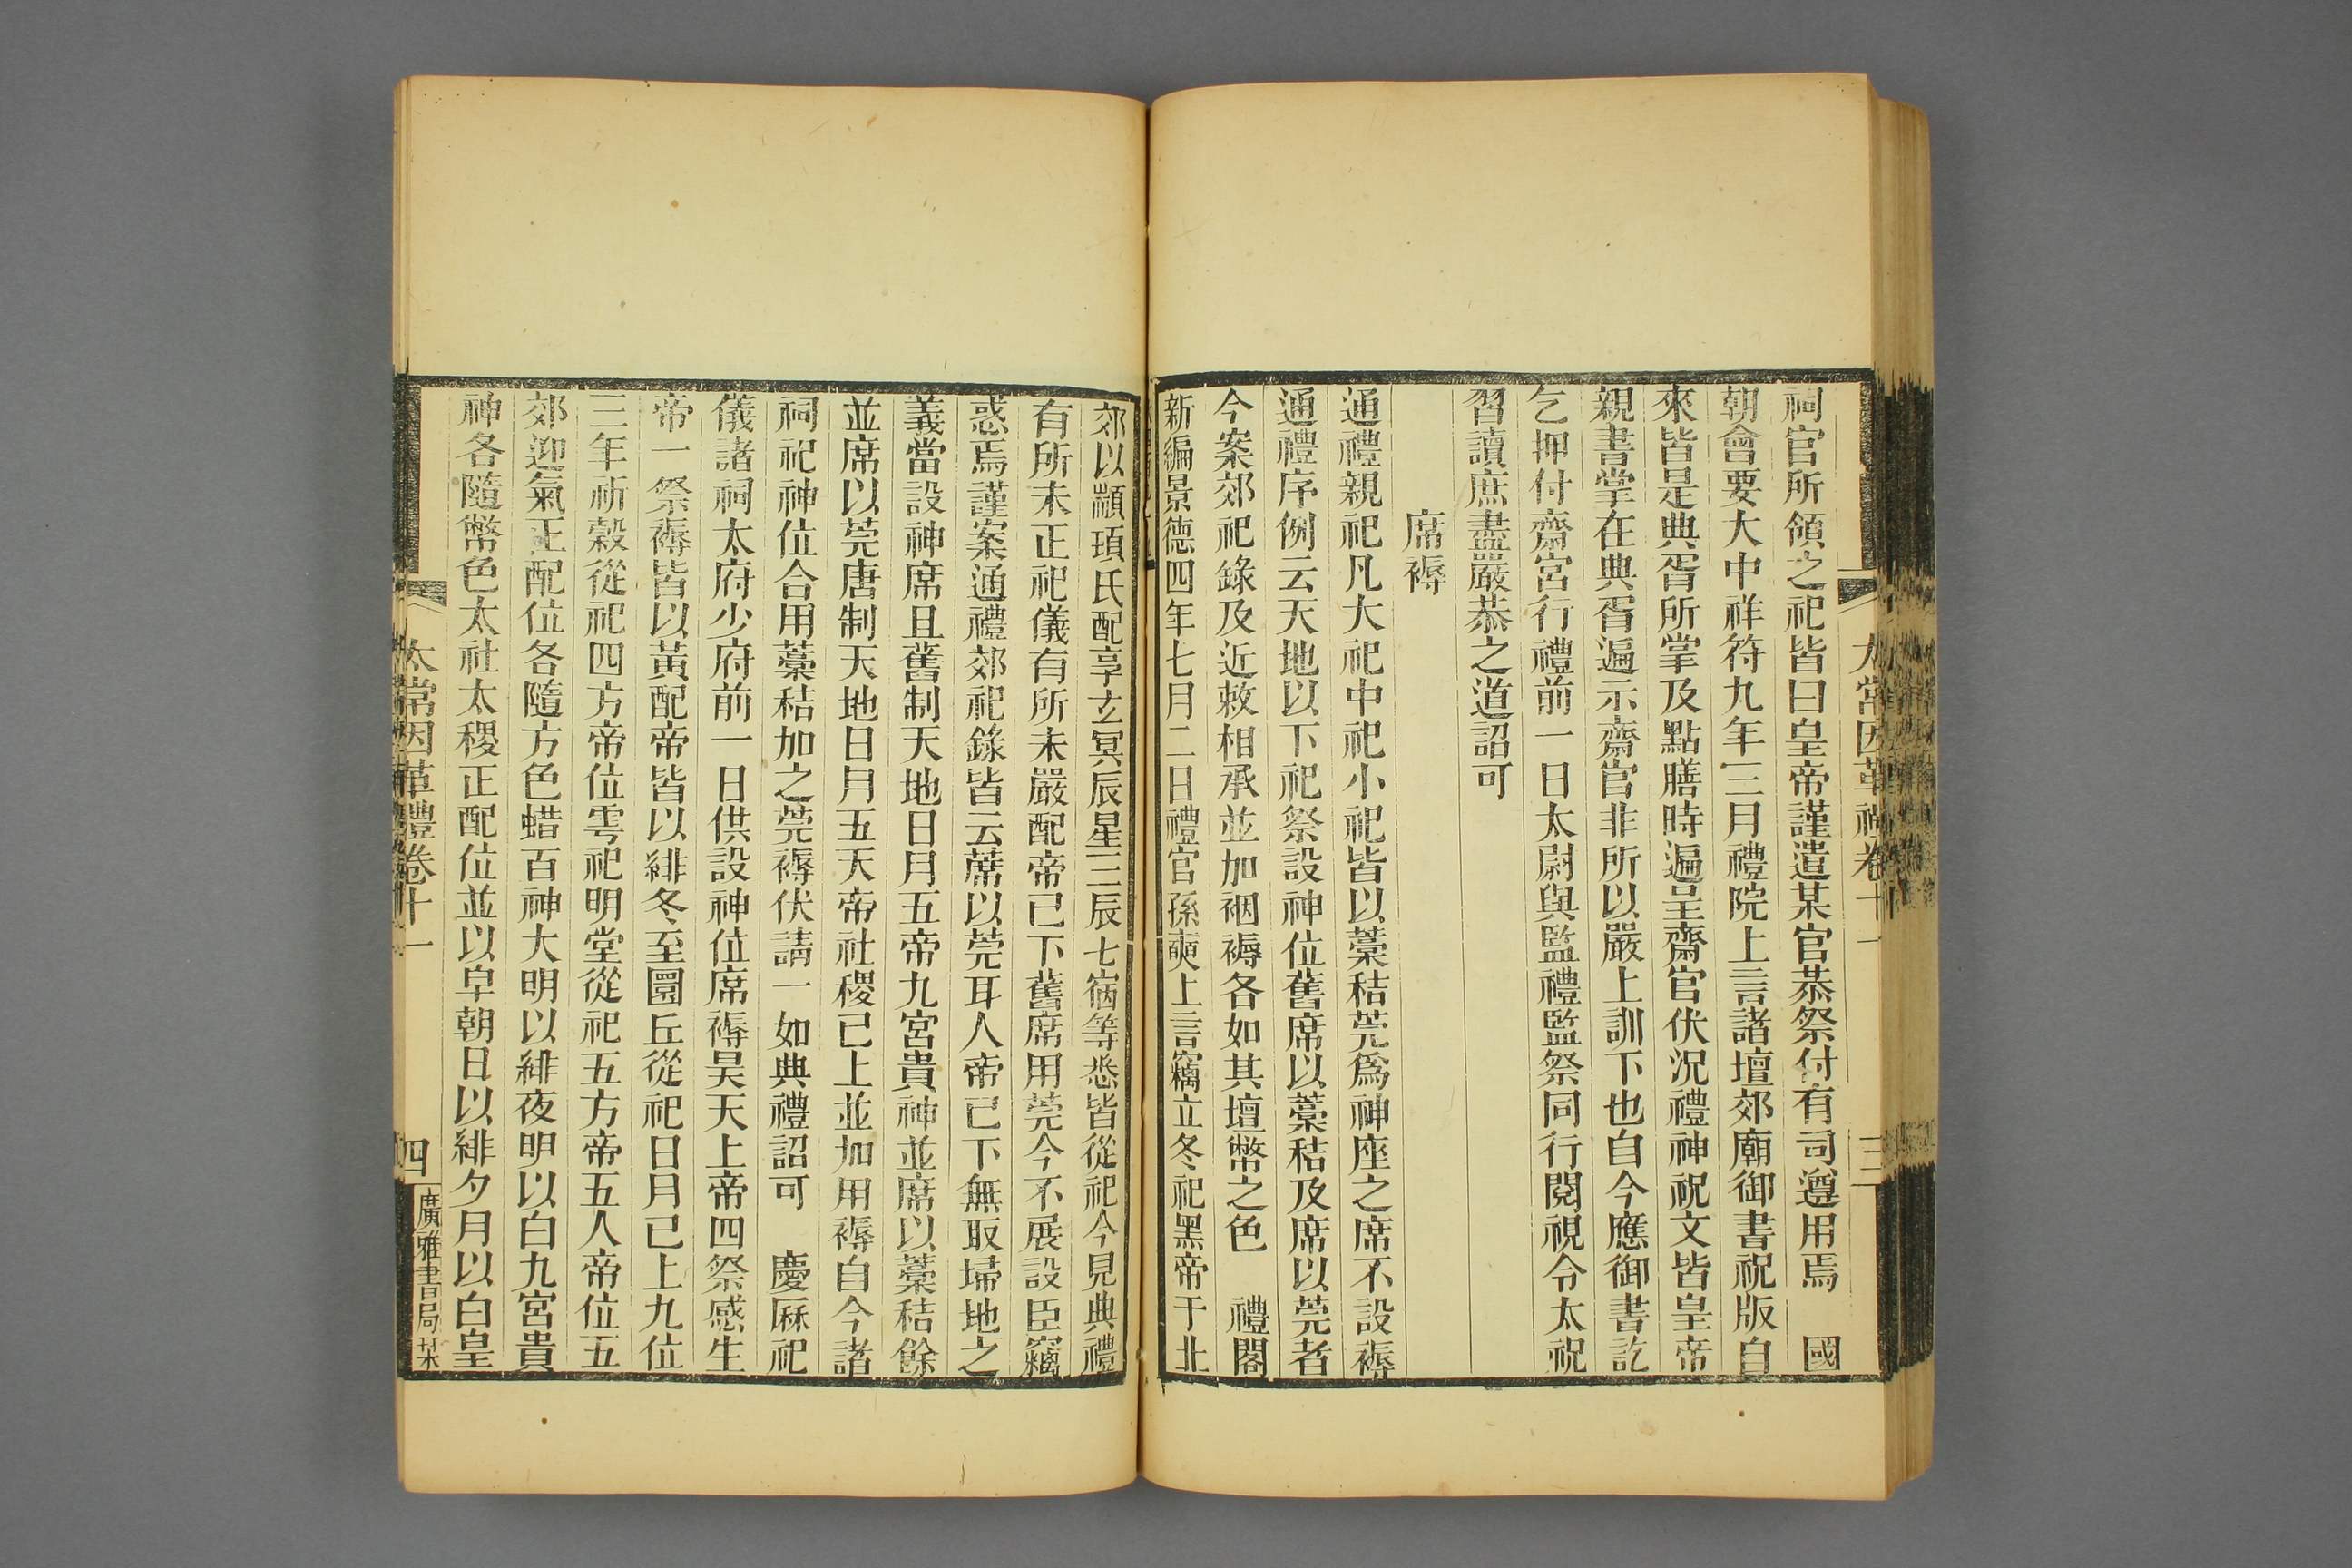 太常因革禮卷十一
三
祠官所領之祀皆曰皇帝謹遣某官恭祭付有司遵用焉　國
朝會要大中祥符九年三月禮院上言諸壇郊廟御書祝版自
來皆是典胥所掌及點膳時遍呈齋官伏況禮神祝文皆皇帝
親書掌在典胥遍示齋官非所以嚴上訓下也自今應御書訖
乞押付齋宮行禮前一日太尉與監禮監祭同行閱視令太祝
習讀庶盡嚴恭之道詔可
席褥
通禮親祀凡大祀中祀小祀皆以藁秸莞爲神座之席不設褥
通禮序例云天地以下祀祭設神位舊席以藁秸及席以莞者
今案郊祀錄及近敕相承並加裀褥各如其壇幣之色　禮閣
新編景德四年七月二日禮官孫奭上言竊立冬祀黑帝于北
郊以顓頊氏配享玄冥辰星三辰七宿等悉皆從祀今見典禮
有所未正祀儀有所未嚴配帝已下舊席用莞今不展設臣竊
惑焉謹案通禮郊祀錄皆云蓆以莞耳人帝已下無取埽地之
義當設神席且舊制天地日月五帝九宮貴神並席以藁秸餘
並席以莞唐制天地日月五天帝社稷已上並加用褥自今諸
祠祀神位合用藁秸加之莞褥伏請一如典禮詔可　慶厤祀
儀諸祠太府少府前一日供設神位席褥昊天上帝四祭感生
帝一祭褥皆以黃配帝皆以緋冬至圜丘從祀日月已上九位
三年祈穀從祀四方帝位雩祀明堂從祀五方帝五人帝位五
郊迎氣正配位各隨方色蜡百神大明以緋夜明以白九宮貴
神各隨幣色太社太稷正配位並以皁朝日以緋夕月以白皇
太常因革禮卷十一
四
廣雅書局栞